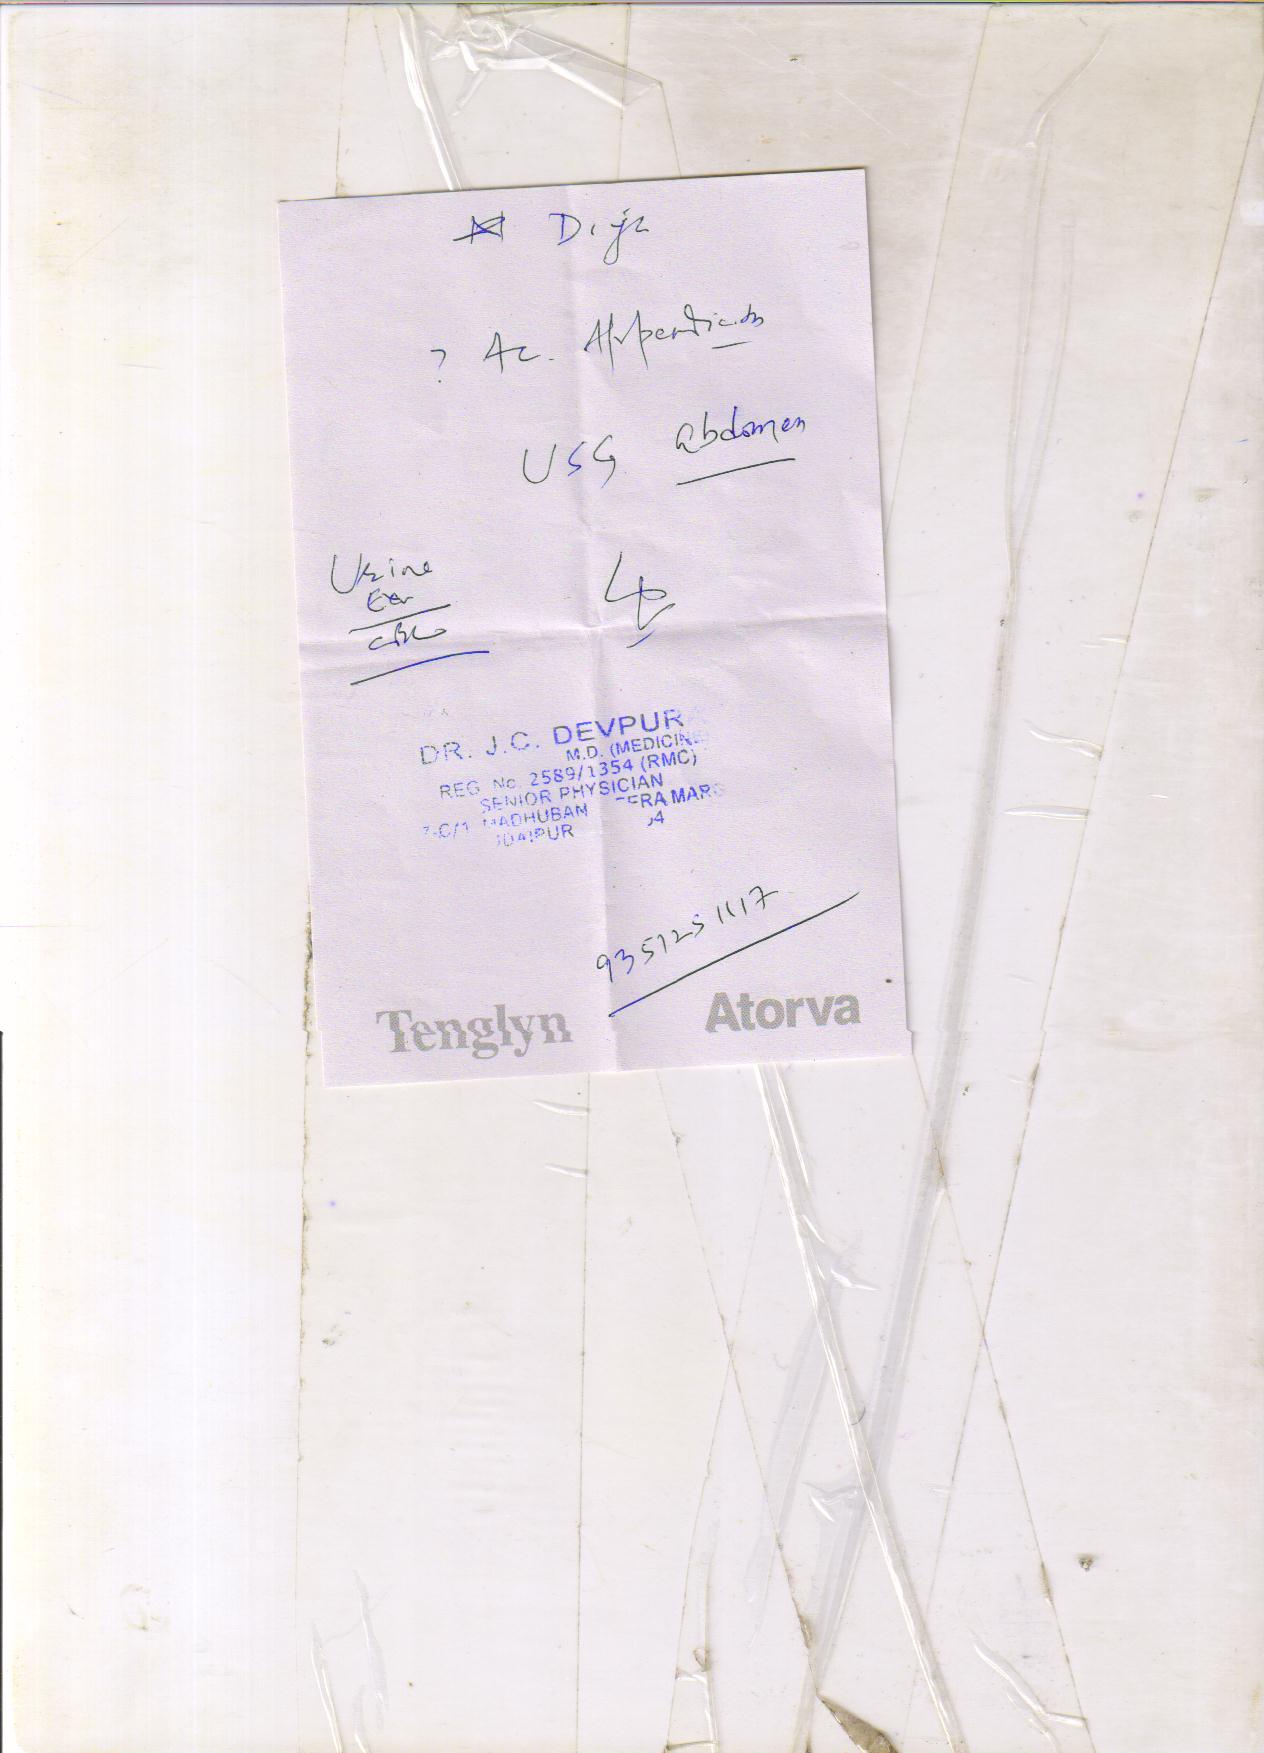 ? Ac. Appendicitis
USG abdomen
Urine
CBC
DR. J.C. DEVPURA
M.D. (MEDICINE)
REG No. 2589/1354 (RMC)
SENIOR PHYSICIAN
MADHUBAN
UDAIPUR
9351251117
Tenglyn Atorva